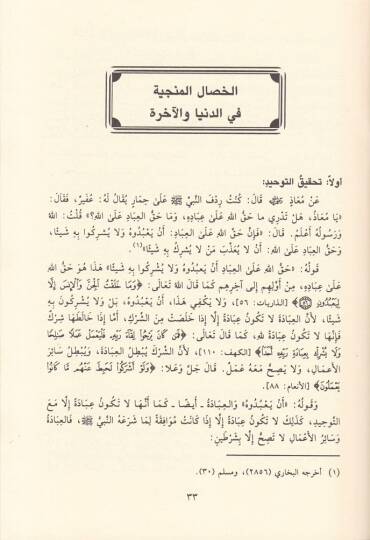 الخصال المنجية
في الدنيا والآخرة
أولاً: تحقيق التوحيد:
عَنْ مُعَاذٍ ﵁ قَالَ: كُنْتُ رِدْفَ النَّبِيِّ ﷺ عَلَىٰ حِمَارٍ يُقَالُ لَهُ: عُفَيْر، فَقَالَ:
«يَا مُعَاذُ، هَلْ تَدْرِي ما حَقُّ اللهِ عَلَىٰ عِبَادِهِ، وَمَا حَقُّ العِبَادِ عَلَىٰ اللهِ؟» قُلْتُ: اللهُ
وَرَسُولُهُ أَعْلَمُ. قَالَ: «فَإِنَّ حَقَّ اللهِ عَلَىٰ العِبَادِ: أَنْ يَعْبُدُوهُ وَلَا يُشْرِكُوا بِهِ شَيئًا،
وَحَقَّ العِبَادِ عَلَىٰ اللهِ: أَنْ لَا يُعَذِّبَ مَنْ لا يُشْرِكُ بِهِ شَيئًا»(١).
قَولُهُ: «حَقُّ اللهِ عَلَىٰ العِبَادِ أَنْ يَعْبُدُوهُ وَلَا يُشْرِكُوا بِهِ شَيئًا» هَذَا هُوَ حَقُّ اللهِ
عَلَىٰ عِبَادِهِ، مِنْ أَوَّلِهِم إِلى آخِرِهِم كَمَا قَالَ اللهُ تَعَالَىٰ: ﴿وَمَا خَلَقْتُ ٱلْجِنَّ وَٱلْإِنسَ إِلَّا
لِيَعْبُدُونِ﴾ [الذاريات: ٥٦]، وَلَا يَكْفِي هَذَا، أَنْ يَعْبُدُوهُ، بَلْ وَلَا يُشْرِكُونَ بِهِ
شَيئًا، لأَنَّ العِبَادَةَ لَا تَكُونُ عِبَادَةً إِلَّا إِذَا خَلَصَتْ مِنَ الشِّرْكِ، أَمَّا إِذَا خَالَطَهَا شِرْكٌ
فَإِنَّهَا لَا تَكُونُ عِبَادَةً للهِ، كَمَا قَالَ تَعَالَىٰ: ﴿فَمَن كَانَ يَرْجُوا۟ لِقَآءَ رَبِّهِۦ فَلْيَعْمَلْ عَمَلًا صَٰلِحًا
وَلَا يُشْرِكْ بِعِبَادَةِ رَبِّهِۦٓ أَحَدًۢا﴾ [الكهف: ١١٠]، لأَنَّ الشِّرْكَ يُبْطِلُ العِبَادَةَ، وَيُبْطِلُ سَائِرَ
الأَعمَالِ، وَلَا يَصِحُّ مَعَهُ عَمَلٌ. قَالَ جَلَّ وَعَلَا: ﴿وَلَوْ أَشْرَكُوا۟ لَحَبِطَ عَنْهُم مَّا كَانُوا۟
يَعْمَلُونَ﴾ [الأنعام: ٨٨].
وَقَولُهُ: «أَنْ يَعْبُدُوهُ» وَالعِبَادَةُ ـ أَيضًا ـ كَمَا أَنَّهَا لَا تَكُونُ عِبَادَةً إِلَّا مَعَ
التَّوحِيدِ، كَذَلِكَ لَا تَكُونُ عِبَادَةً إِلَّا إِذَا كَانَتْ مُوَافِقَةً لِمَا شَرَعَهُ النَّبِيُّ ﷺ، فَالعِبَادَةُ
وَسَائِرُ الأَعْمَالِ لَا تَصِحُّ إِلَّا بِشَرْطَيْنِ:
(١) أخرجه البخاري (٢٨٥٦)، ومسلم (٣٠).
٣٣